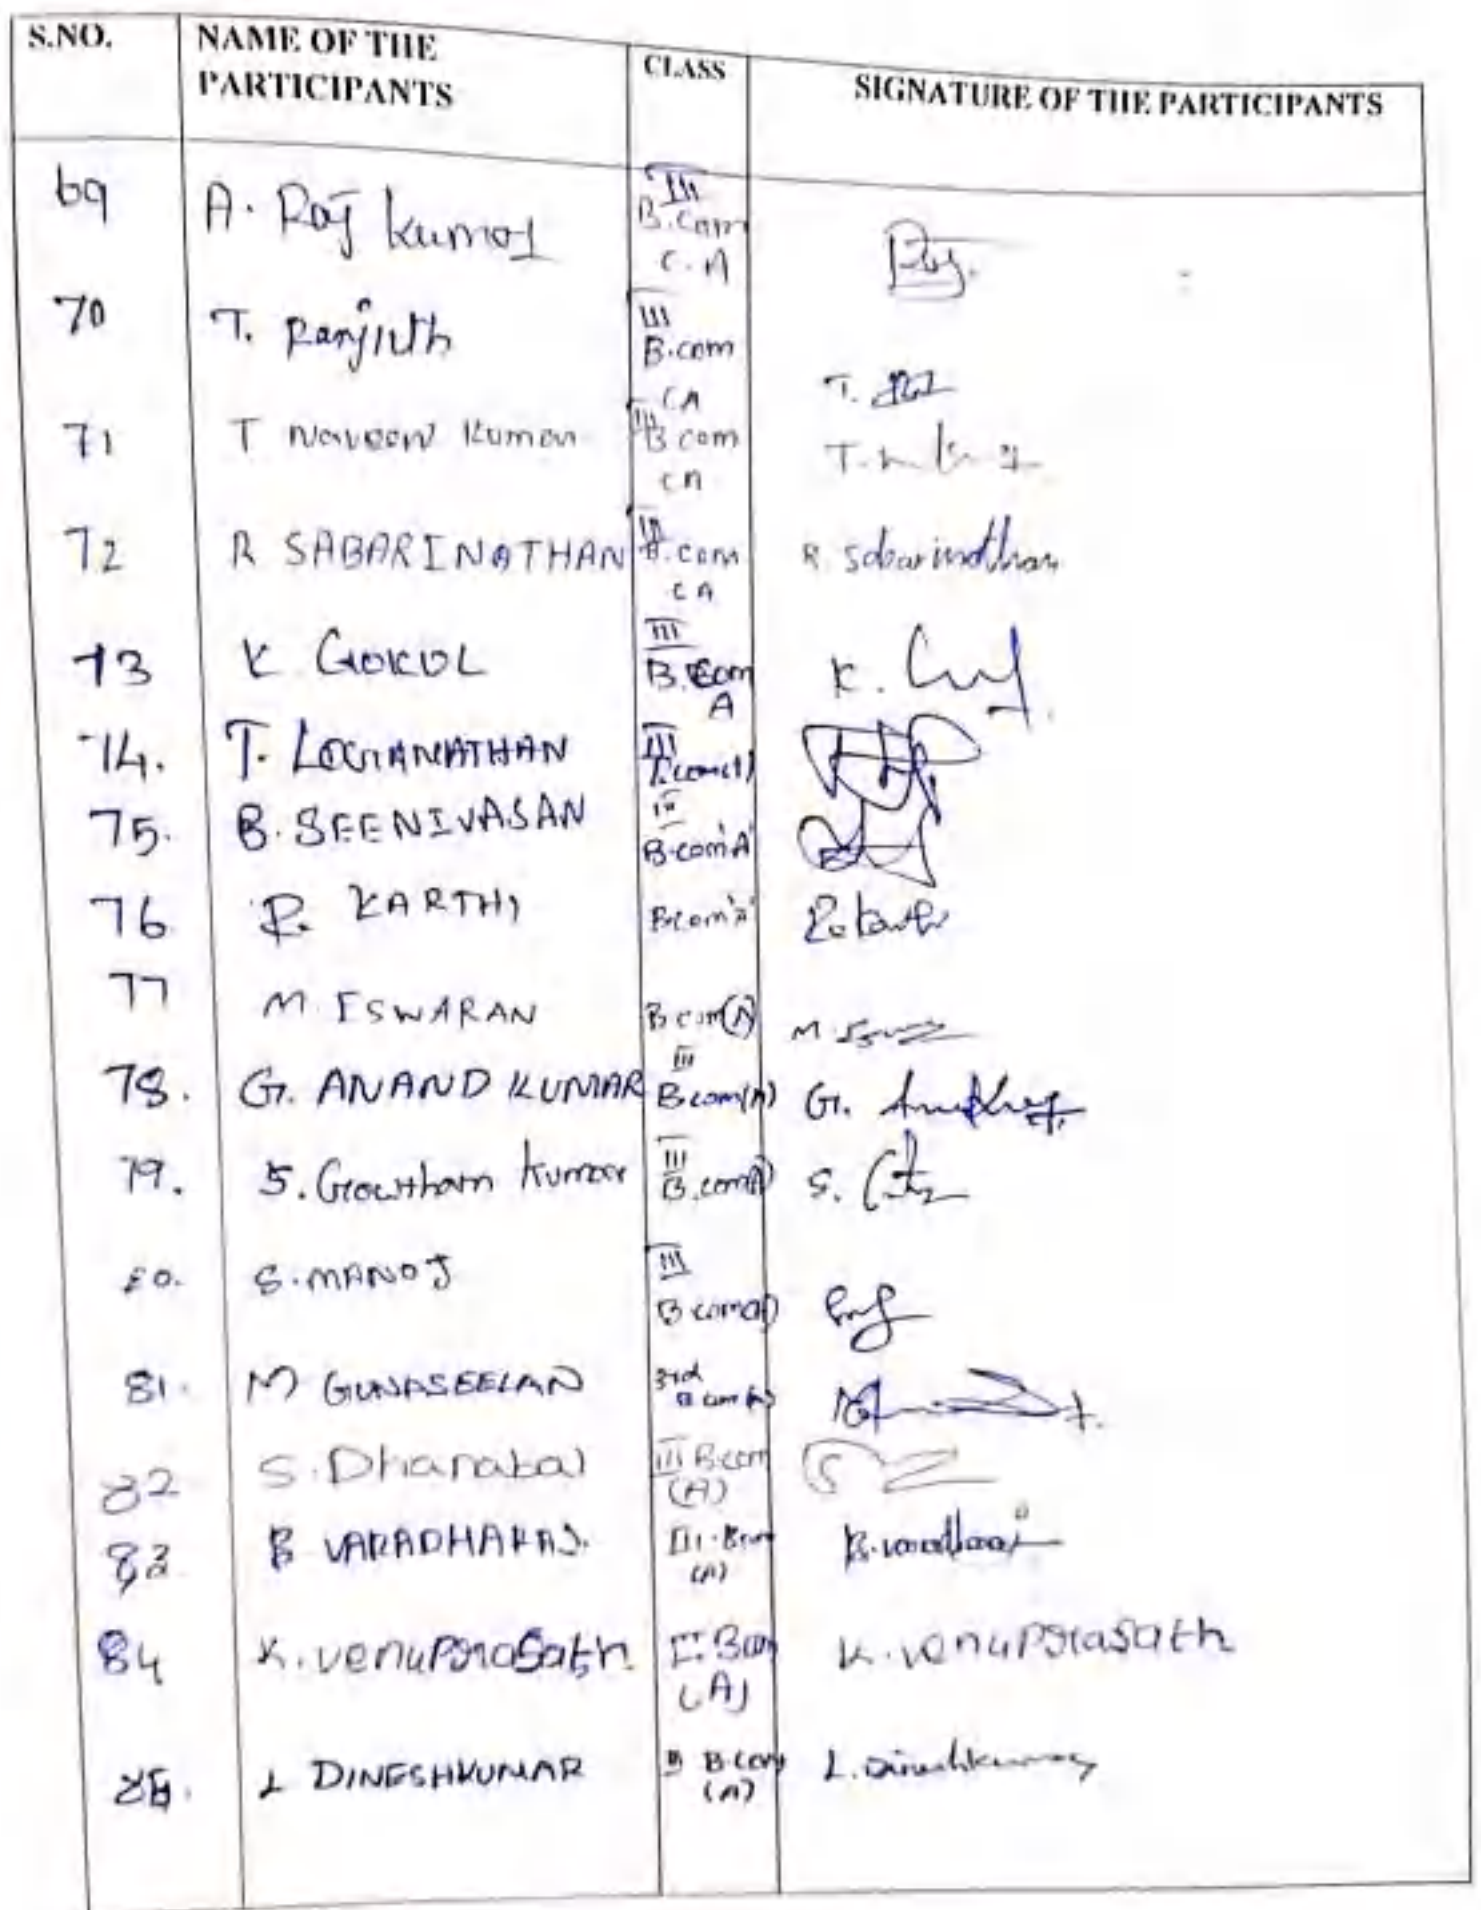 S.NO. NAME OF THE PARTICIPANTS CLASS SIGNATURE OF THE PARTICIPANTS
69 A. Raj Kumar III B.Com C.A Raj.
70 T. Ranjith III B.com CA T.
71 T Naveen Kumar III B com CA T.
72 R SABARINATHAN III B.com CA R. Sabarinathan
73 K GOKUL III B.Com A K.
74. T. LOGIANATHAN III
75. B. SEENIVASAN III B.com'A'
76 R. KARTHI B.com'A' R. Karthi
77 M ESWARAN B com(A) M.
78. G. ANAND KUMAR III B.com(A) G.
79. S. Gowtham Kumar III B.com(A) S.
80. S. MANOJ III B.com(A)
81. M GUNASEELAN 3rd B com (A)
82 S. Dhanabal III B.com (A) S
83 B VARADHARAJ. III. B.com (A) B. varadharaj
84 K. Venuprasath B.com (A) K. Venuprasath
85. L DINESHKUMAR B.com (A) L. Dineshkumar